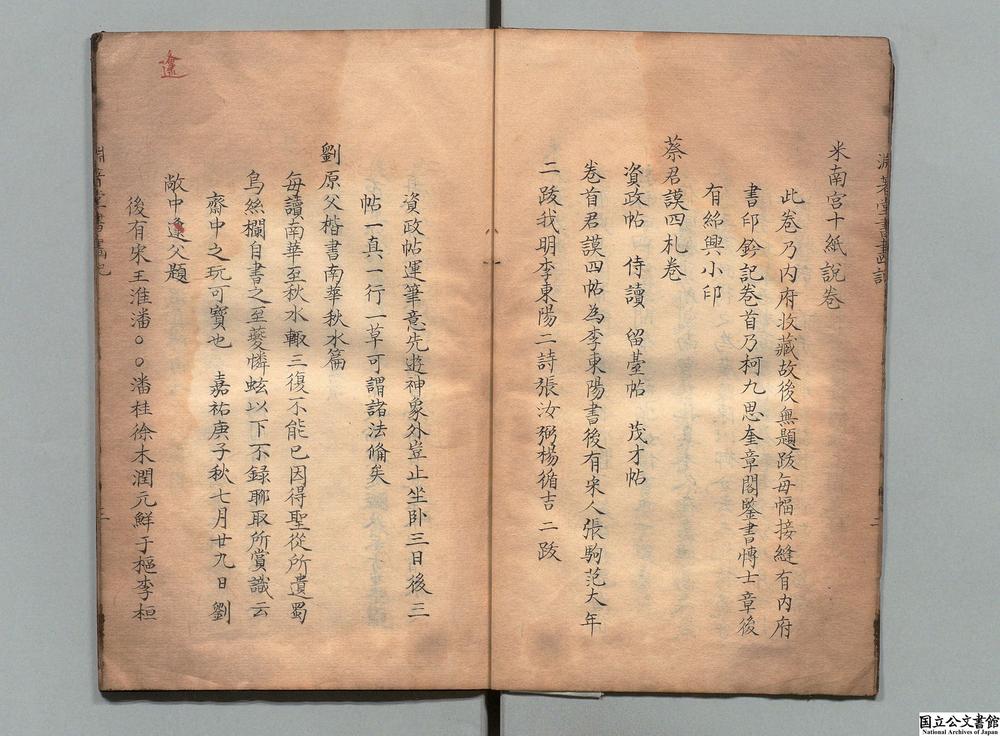 米南宮十紙說卷
此卷乃内府收藏故後無題跋每幅接縫有内府
書印鈐記卷首乃柯九思奎章閣鑒書愽士章後
有紹興小印
蔡君謨四札卷
資政帖　侍讀　留臺帖　茂才帖
卷首君謨四帖為李東陽書後有宋人張駒范大年
二跋我明李東陽二詩張汝弼楊循吉二跋
資政帖運筆意先逰神象外豈止坐卧三日後三
帖一真一行一草可謂諸法俻矣
劉原父楷書南華秋水篇
每讀南華至秋水輙三復不能已因得聖從所遺蜀
烏絲欄自書之至夔憐蚿以下不録聊取所賞識云
齋中之玩可寳也　嘉祐庚子秋七月廿九日劉
敞中逢父題
後有宋王淮潘○○潘桂徐木潤元鮮于樞李桓
逢
國立公文書館
National Archives of Japan